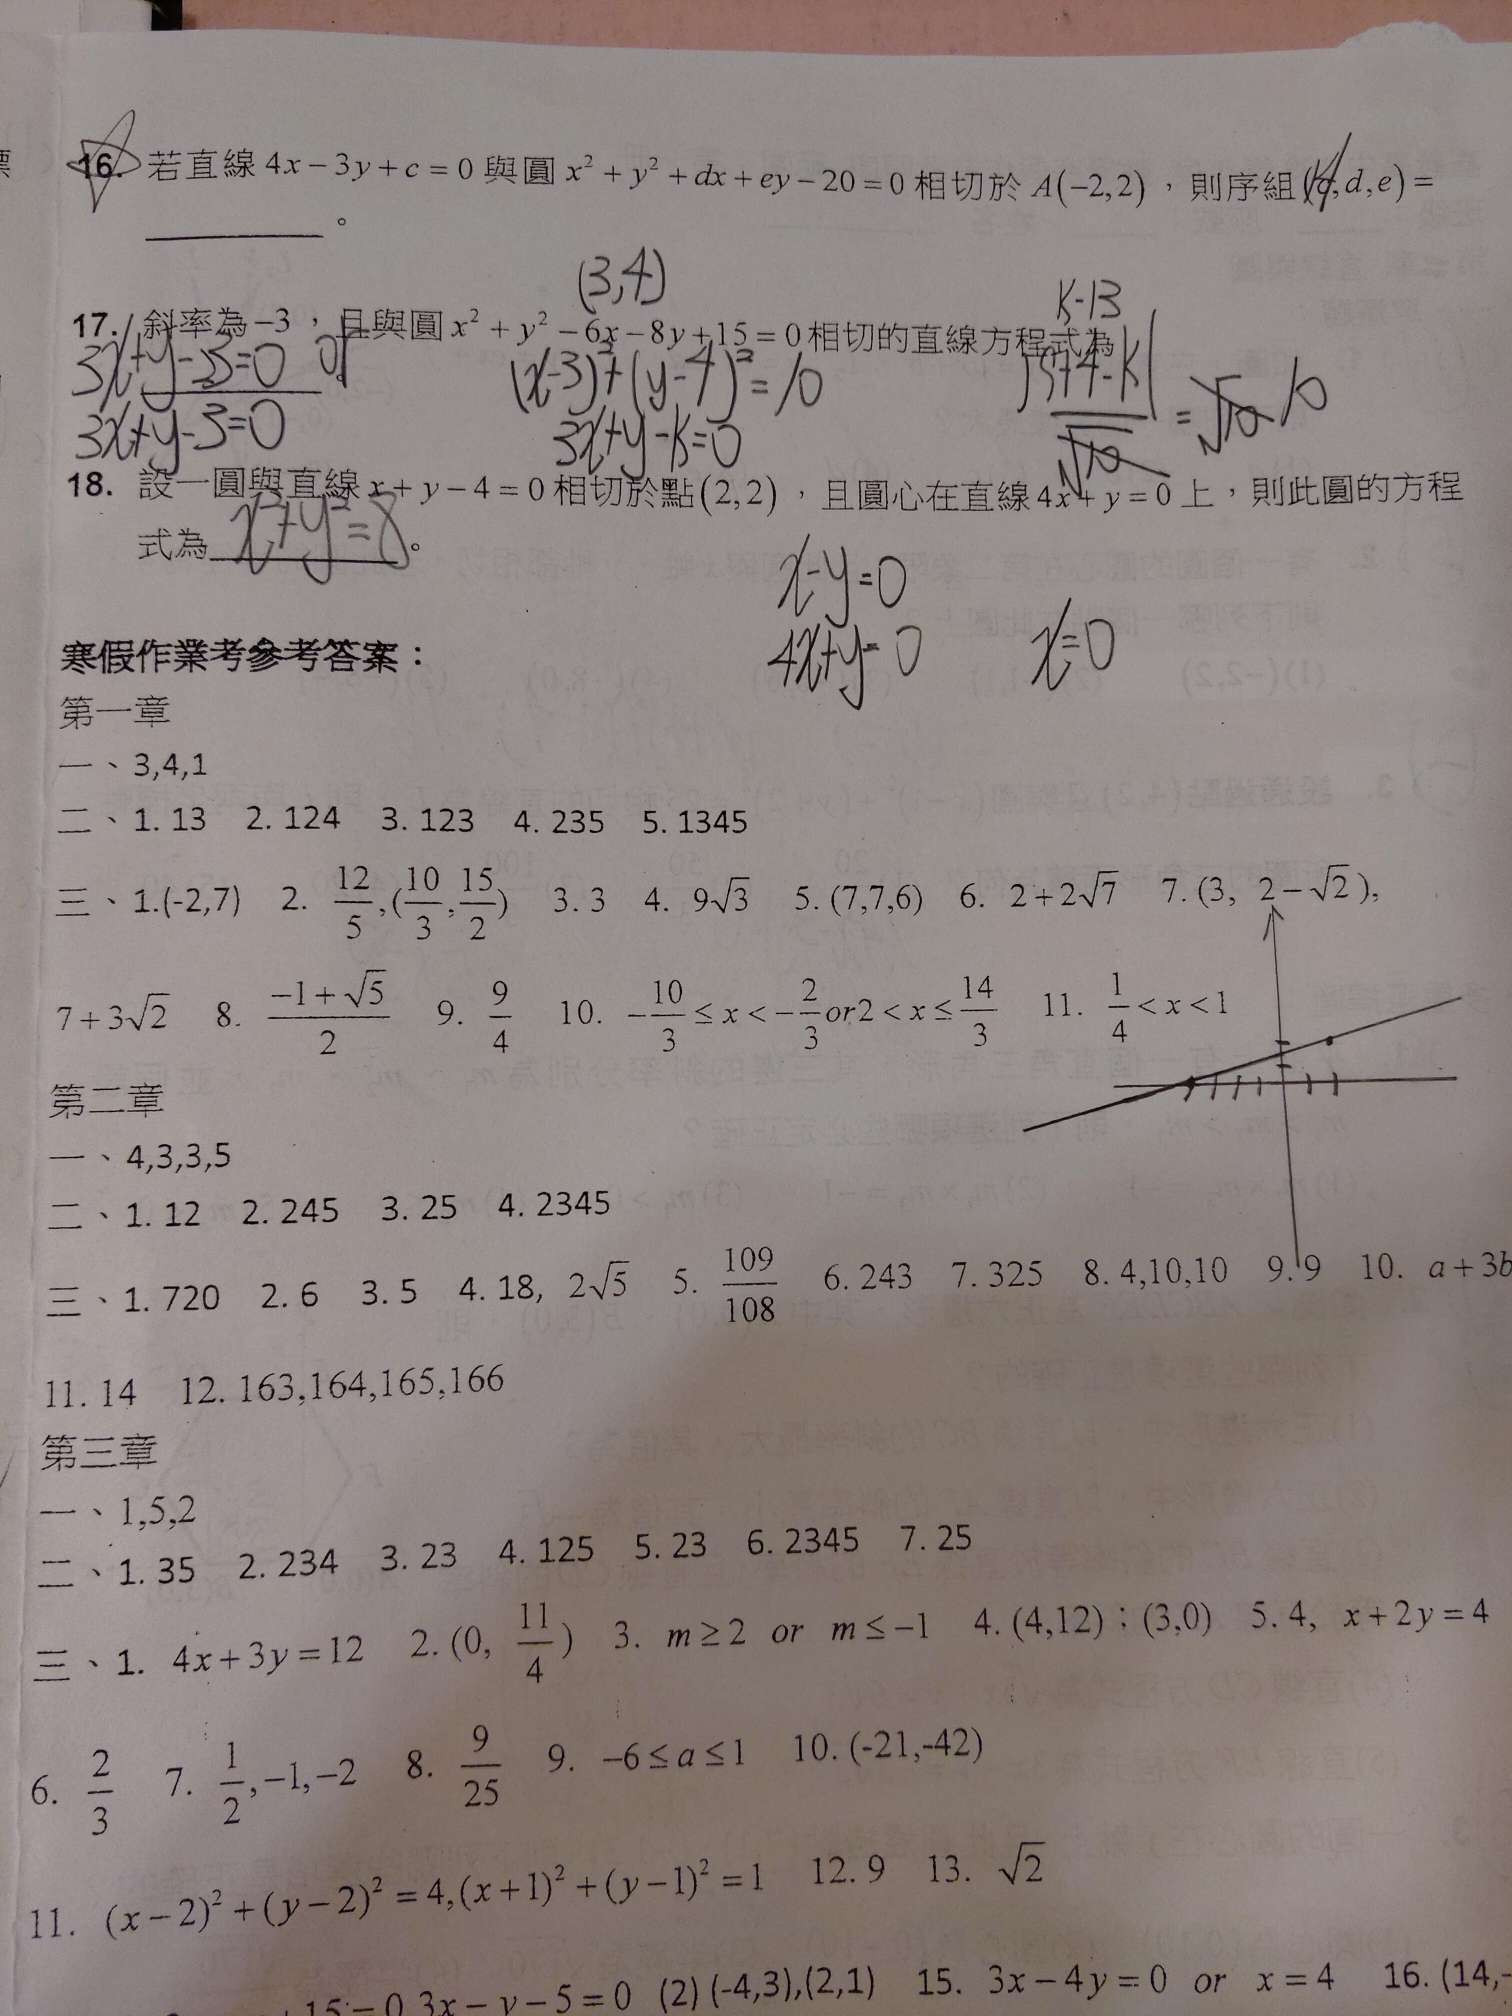 16. 若直線 4x − 3y + c = 0 與圓 x² + y² + dx + ey − 20 = 0 相切於 A(−2,2)，則序組(c,d,e) =
________。
(3,4)
k-13
17. 斜率為 −3，且與圓 x² + y² − 6x − 8y + 15 = 0 相切的直線方程式為
3x+y-23=0 or
3x+y-3=0
(x-3)²+(y-4)²=10
3x+y-k=0
|9+4-k|
√10
= √10 10
18. 設一圓與直線 x + y − 4 = 0 相切於點(2,2)，且圓心在直線 4x + y = 0 上，則此圓的方程
式為 x²+y²=8。
x-y=0
4x+y=0
x=0
寒假作業考參考答案：
第一章
一、3,4,1
二、1. 13 2. 124 3. 123 4. 235 5. 1345
三、1.(-2,7) 2. 12/5,(10/3,15/2) 3. 3 4. 9√3 5. (7,7,6) 6. 2+2√7 7. (3, 2−√2),
7+3√2 8. (−1+√5)/2 9. 9/4 10. −10/3 ≤ x < −2/3 or 2 < x ≤ 14/3 11. 1/4 < x < 1
第二章
一、4,3,3,5
二、1. 12 2. 245 3. 25 4. 2345
三、1. 720 2. 6 3. 5 4. 18, 2√5 5. 109/108 6. 243 7. 325 8. 4,10,10 9. 9 10. a+3b
11. 14 12. 163,164,165,166
第三章
一、1,5,2
二、1. 35 2. 234 3. 23 4. 125 5. 23 6. 2345 7. 25
三、1. 4x+3y=12 2. (0, 11/4) 3. m ≥ 2 or m ≤ −1 4. (4,12)；(3,0) 5. 4, x+2y=4
6. 2/3 7. 1/2,−1,−2 8. 9/25 9. −6 ≤ a ≤ 1 10. (-21,-42)
11. (x−2)²+(y−2)²=4,(x+1)²+(y−1)²=1 12. 9 13. √2
+15=0 3x−y−5=0 (2) (-4,3),(2,1) 15. 3x−4y=0 or x=4 16. (14,-